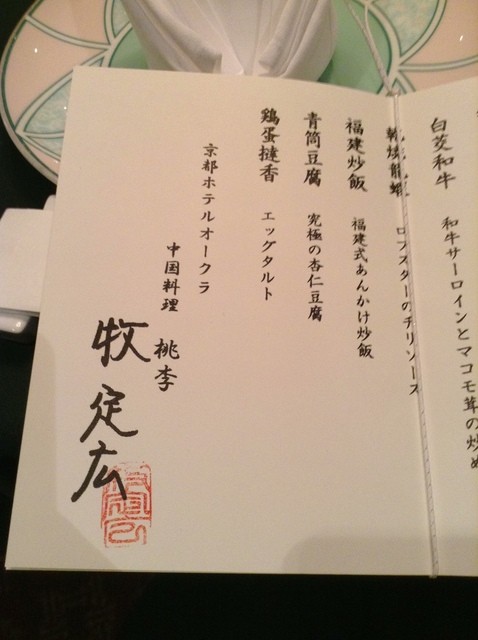 白茭和牛 和牛サーロインとマコモ茸の炒め
乾焼龍蝦 ロブスターのチリソース
福建炒飯 福建式あんかけ炒飯
青筒豆腐 究極の杏仁豆腐
鶏蛋撻香 エッグタルト
京都ホテルオークラ
中国料理 桃李
牧 定広